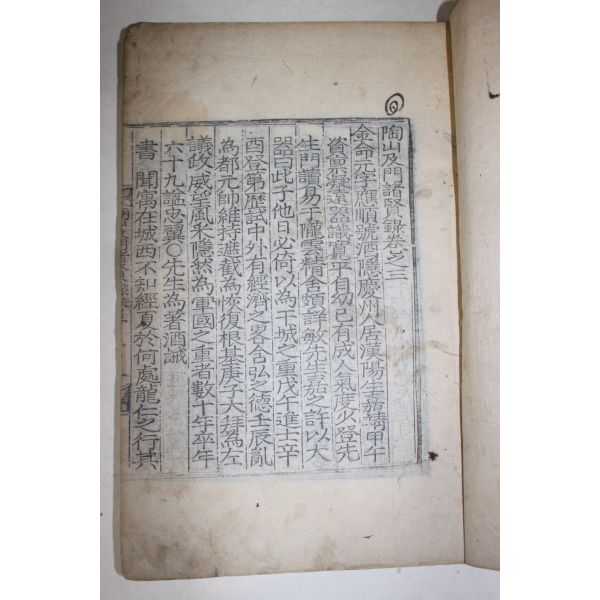 陶山及門諸賢錄卷之三
金命元字應順號酒隱慶州人居漢陽生嘉靖甲午
資稟凝遠器識寬平自幼已有成人氣度少登先
生門讀易于隴雲精舍頗詳敏先生嘉之許以大
器曰此子他日必倚以為干城之重戊午進士辛
酉登第歷試中外有經濟之畧含弘之德壬辰亂
為都元帥維持遮截為恢復根基庚子大拜為左
議政威望風采隱然為軍國之重者數十年卒年
六十九謚忠翼○先生為著酒誡
書 聞寓在城西不知經夏於何處龍仁之行其